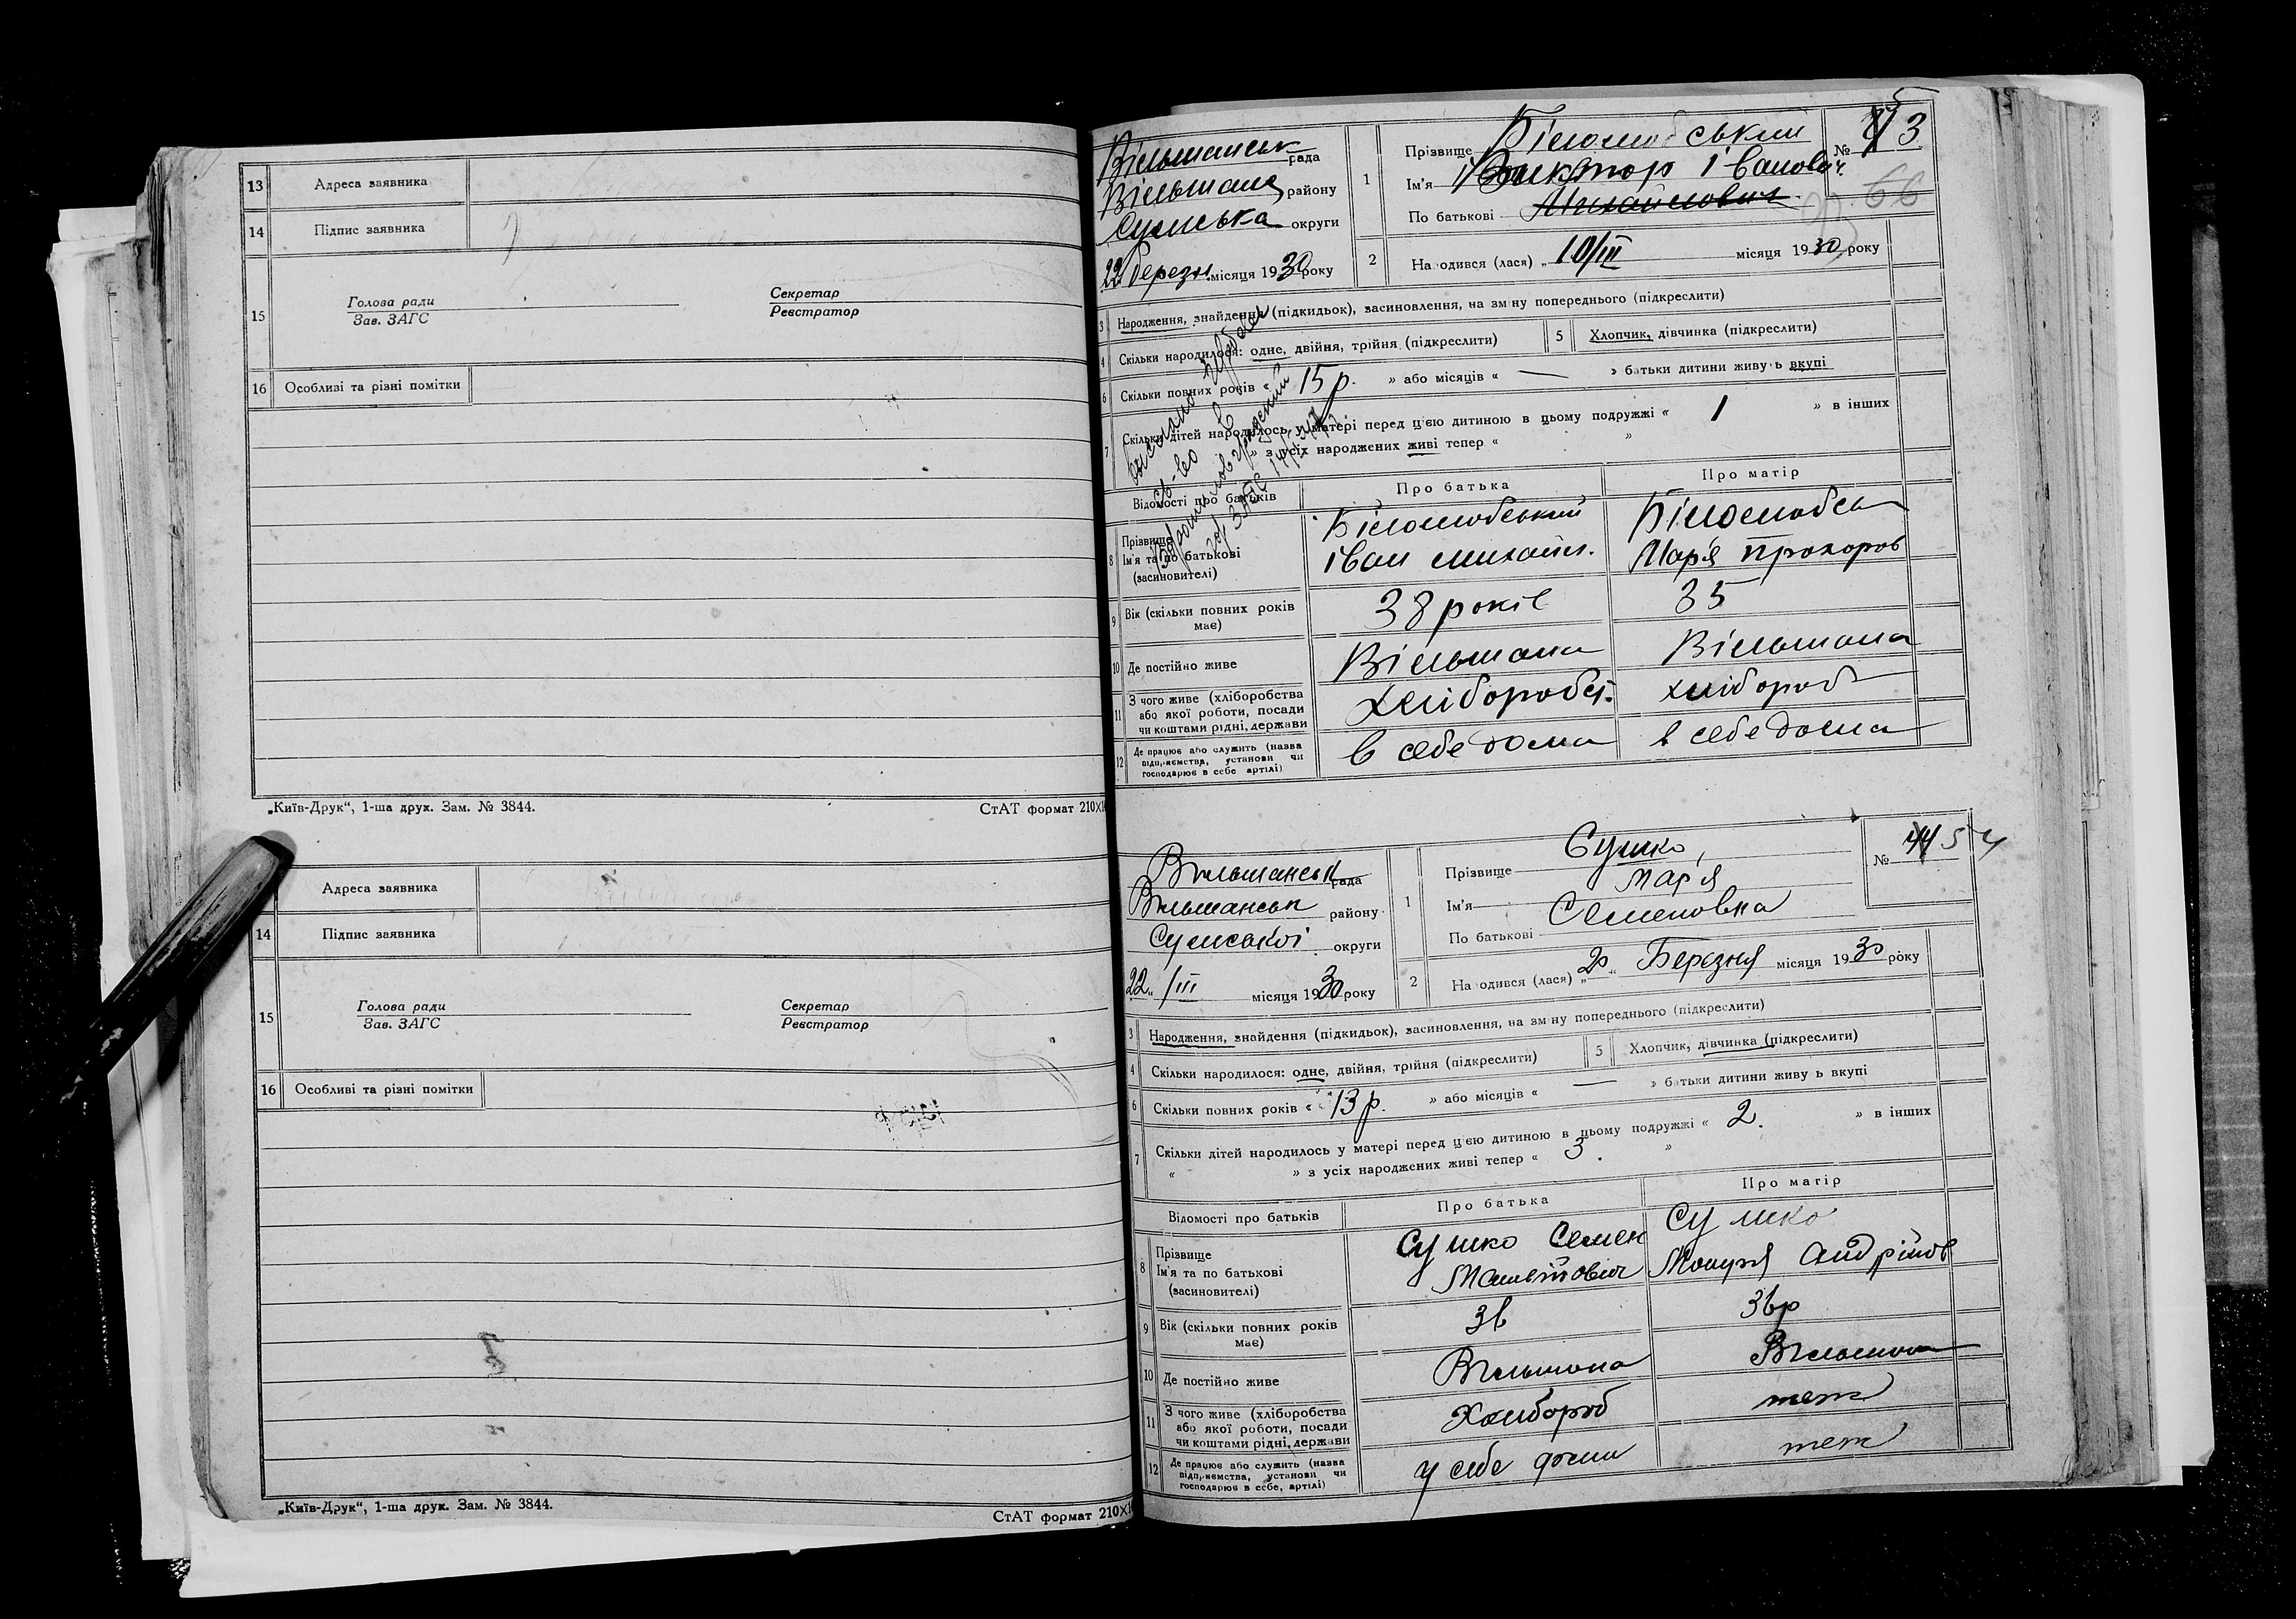 13 Адреса заявника
14 Підпис заявника
15 Голова ради Секретар
Зав. ЗАГС Реєстратор
16 Особливі та різні помітки
„Київ-Друк“, 1-ша друк. Зам. № 3844. СтАТ формат 210×1
Адреса заявника
14 Підпис заявника
15 Голова ради Секретар
Зав. ЗАГС Реєстратор
16 Особливі та різні помітки
„Київ-Друк“, 1-ша друк. Зам. № 3844. СтАТ формат 210×1
Вільшанськ рада
Вільшанс району
Сумська округи
22 березн. місяця 1930 року
1 Прізвище Білослюбський № 3
Ім'я Виктор Іванович
По батькові Михайлович
66
2 На одився (лася) „ 10/III місяця 1930 року
3 Народження, знайдення (підкидьок), засиновлення, на зм ну попереднього (підкреслити)
4 Скільки народилося: одне, двійня, трійня (підкреслити) 5 Хлопчик, дівчинка (підкреслити)
6 Скільки повних років « 15 р. » або місяців « — » батьки дитини живу ь вкупі
7 Скільки дітей народилось у матері перед ц'єю дитиною в цьому подружжі « 1 » в інших
» з усіх народжених живі тепер « »
Відомості про батьків Про батька Про матір
8 Прізвище
Ім'я та по батькові
(засиновителі)
Білослюбський
Іван Михайл.
Марʼя Прохоров
9 Вік (скільки повних років має) 38 років 35
10 Де постійно живе Вільшана Вільшана
11 З чого живе (хліборобства
або якої роботи, посади
чи коштами рідні, держави
Хліборобст. хлібороб
12 Де працює або служить (назва
підприємства, установи чи
господарює в себе артілі)
в себе дома в себе дома
Вільшанськ рада
Вільшанськ району
Сумської округи
22 „ /III місяця 1930 року
1 Прізвище Сушко, № 44 54
Ім'я Мар'я
По батькові Семеновна
2 На одився (лася) „ 20 „ Березня місяця 1930 року
3 Народження, знайдення (підкидьок), засиновлення, на зм ну попереднього (підкреслити)
4 Скільки народилося: одне, двійня, трійня (підкреслити) 5 Хлопчик, дівчинка (підкреслити)
6 Скільки повних років « 13 р. » або місяців « — » батьки дитини живу ь вкупі
7 Скільки дітей народилось у матері перед ц'єю дитиною в цьому подружжі « 2. » в інших
« » з усіх народжених живі тепер « 3. »
Відомості про батьків Про батька Про матір
8 Прізвище
Ім'я та по батькові
(засиновителі)
Сушко Семен Сушко
Андріїов
9 Вік (скільки повних років має) 36 36р
10 Де постійно живе Вільшона Вільшона
11 З чого живе (хліборобства
або якої роботи, посади
чи коштами рідні, держави
Хлибороб теж
12 Де працює або служить (назва
підприємства, установи чи
господарює в себе, артілі)
у себе дома теж